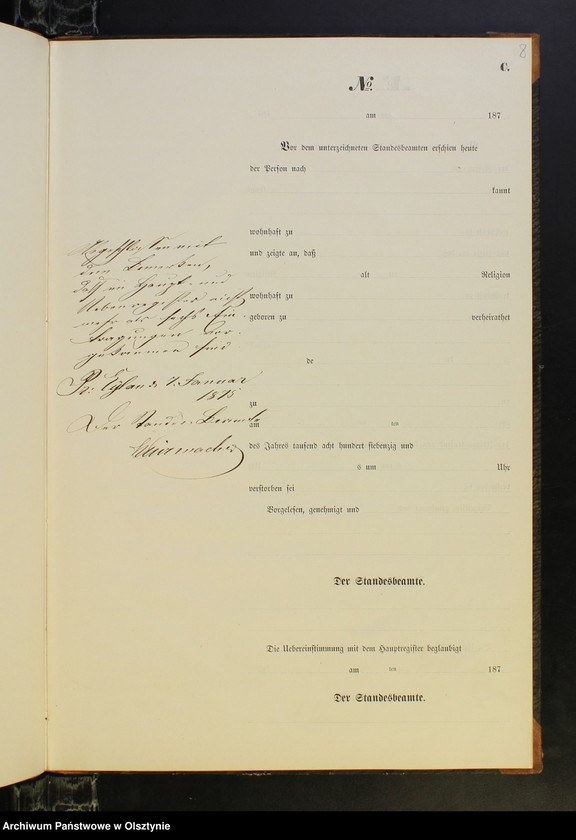 8
C.
No.
am 187
Vor dem unterzeichneten Standesbeamten erschien heute
der Person nach
kannt
wohnhaft zu
und zeigte an, daß
alt Religion
wohnhaft zu
geboren zu verheirathet
de
zu
am ten
des Jahres tausend acht hundert siebenzig und
s um Uhr
verstorben sei
Vorgelesen, genehmigt und
Der Standesbeamte.
Die Uebereinstimmung mit dem Hauptregister beglaubigt
am ten 187
Der Standesbeamte.
Abgeschlossen mit
dem Bemerken,
daß im Haupt- und
Nebenregister nicht
mehr als sechs Ein-
tragungen vor-
gekommen sind
Pr: Eylau d. 7. Januar
1875
Der Standes Beamte
Archiwum Państwowe w Olsztynie